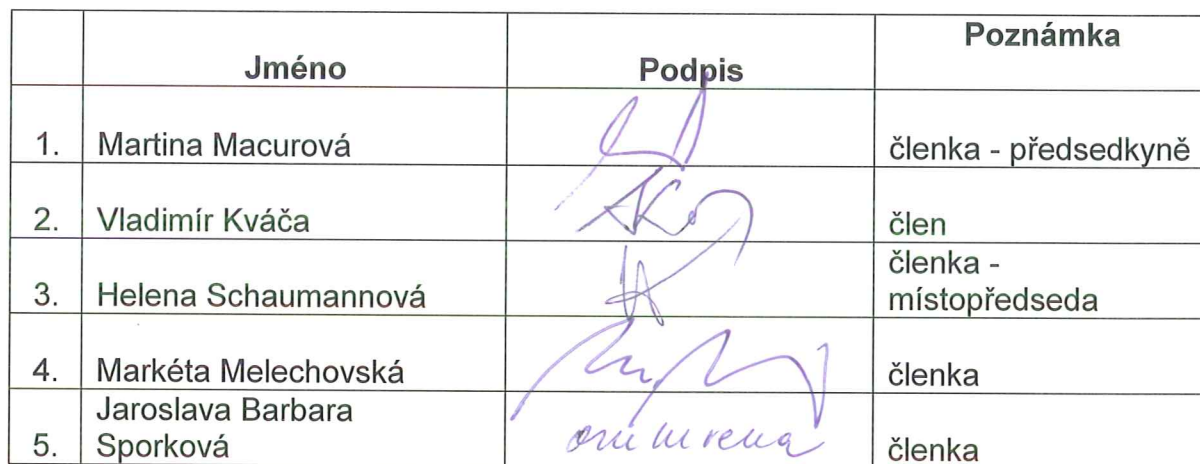 Jméno Podpis Poznámka
1. Martina Macurová členka - předsedkyně
2. Vladimír Kváča člen
3. Helena Schaumannová členka -
místopředseda
4. Markéta Melechovská členka
Jaroslava Barbara
5. Sporková omluvena členka